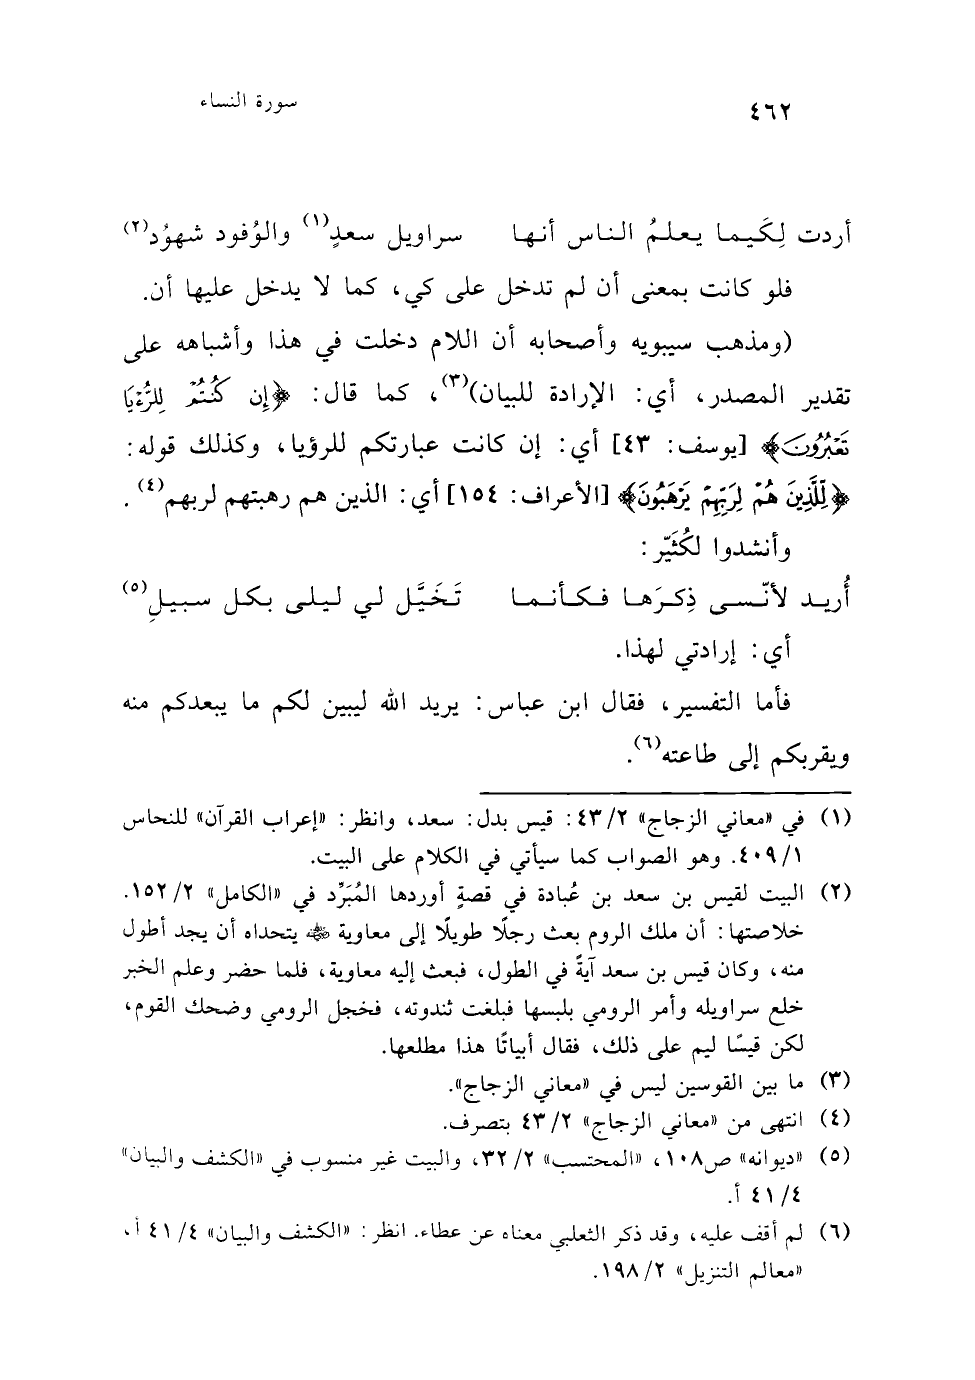 ٤٦٢
سورة النساء
أردت لِكَيـمـا يـعـلـمُ الـنـاس أنـهـا سراويل سعدٍ(١) والوُفود شهوُد(٢)
فلو كانت بمعنى أن لم تدخل على كي، كما لا يدخل عليها أن.
(ومذهب سيبويه وأصحابه أن اللام دخلت في هذا وأشباهه على
تقدير المصدر، أي: الإرادة للبيان)(٣)، كما قال: ﴿إِن كُنتُمْ لِلرُّءْيَا
تَعْبُرُونَ﴾ [يوسف: ٤٣] أي: إن كانت عبارتكم للرؤيا، وكذلك قوله:
﴿لِّلَّذِينَ هُمْ لِرَبِّهِمْ يَرْهَبُونَ﴾ [الأعراف: ١٥٤] أي: الذين هم رهبتهم لربهم(٤).
وأنشدوا لكُثَيّر:
أُريـد لأنّـسـى ذِكـرَهـا فـكـأنـمـا تَخَيَّل لي ليلى بكل سبيلِ(٥)
أي: إرادتي لهذا.
فأما التفسير، فقال ابن عباس: يريد الله ليبين لكم ما يبعدكم منه
ويقربكم إلى طاعته(٦).
(١) في «معاني الزجاج» ٤٣/٢: قيس بدل: سعد، وانظر: «إعراب القرآن» للنحاس
٤٠٩/١. وهو الصواب كما سيأتي في الكلام على البيت.
(٢) البيت لقيس بن سعد بن عُبادة في قصةٍ أوردها المُبَرِّد في «الكامل» ١٥٢/٢.
خلاصتها: أن ملك الروم بعث رجلًا طويلًا إلى معاوية ﷺ يتحداه أن يجد أطول
منه، وكان قيس بن سعد آيةً في الطول، فبعث إليه معاوية، فلما حضر وعلم الخبر
خلع سراويله وأمر الرومي بلبسها فبلغت ثندوته، فخجل الرومي وضحك القوم،
لكن قيسًا ليم على ذلك، فقال أبياتًا هذا مطلعها.
(٣) ما بين القوسين ليس في «معاني الزجاج».
(٤) انتهى من «معاني الزجاج» ٤٣/٢ بتصرف.
(٥) «ديوانه» ص١٠٨، «المحتسب» ٣٢/٢، والبيت غير منسوب في «الكشف والبيان»
٤١/٤ أ.
(٦) لم أقف عليه، وقد ذكر الثعلبي معناه عن عطاء. انظر: «الكشف والبيان» ٤١/٤ أ،
«معالم التنزيل» ١٩٨/٢.